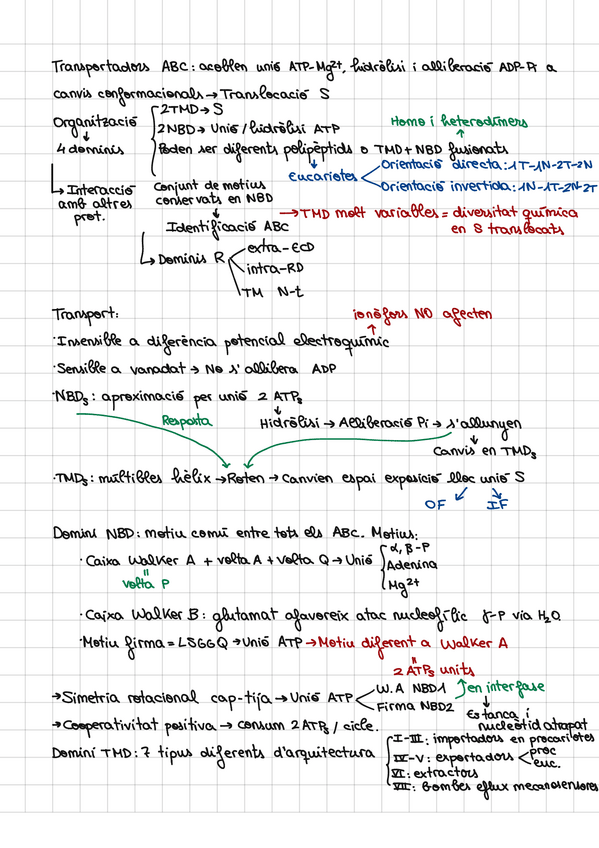 Transportadors ABC: acoblen unió ATP-Mg²⁺, hidròlisi i alliberació ADP-Pi a
canvis conformacionals → Translocació S
Organització
↓
4 dominis
2TMD → S
2NBD → Unió/hidròlisi ATP
Poden ser diferents polipèptids o TMD+NBD fusionats
Homo i heterodímers
Eucariotes
Orientació directa: 1T-1N-2T-2N
Orientació invertida: 1N-1T-2N-2T
↳ Interacció
amb altres
prot.
Conjunt de motius
conservats en NBD
↓
Identificació ABC
→ TMD molt variables = diversitat química
en S translocats
↳ Dominis R
extra-ECD
intra-RD
TM N-t
Transport:
ionòfors NO afecten
· Insensible a diferència potencial electroquímic
· Sensible a vanadat → No s'allibera ADP
· NBDs: aproximació per unió 2 ATPs
Resposta
Hidròlisi → Alliberació Pi → s'allunyen
↓
Canvis en TMDs
· TMDs: múltibles hèlix → Roten → Canvien espai exposició lloc unió S
OF IF
Domini NBD: motiu comú entre tots els ABC. Motius:
· Caixa Walker A + volta A + volta Q → Unió
α, β-P
Adenina
Mg²⁺
=
volta P
· Caixa Walker B: glutamat afavoreix atac nucleofílic γ-P via H₂O
· Motiu firma = LSGGQ → Unió ATP → Motiu diferent a Walker A
=
2 ATPs units
→ Simetria rotacional cap-tija → Unió ATP
W.A NBD1
Firma NBD2
en interfase
↓
Estanca i
nucleòtid atrapat
→ Cooperativitat positiva → consum 2 ATPs / cicle.
Domini TMD: 7 tipus diferents d'arquitectura
I-III: importadors en procariotes
IV-V: exportadors
proc
euc.
VI: extractors
VII: Bombes eflux mecanosensores